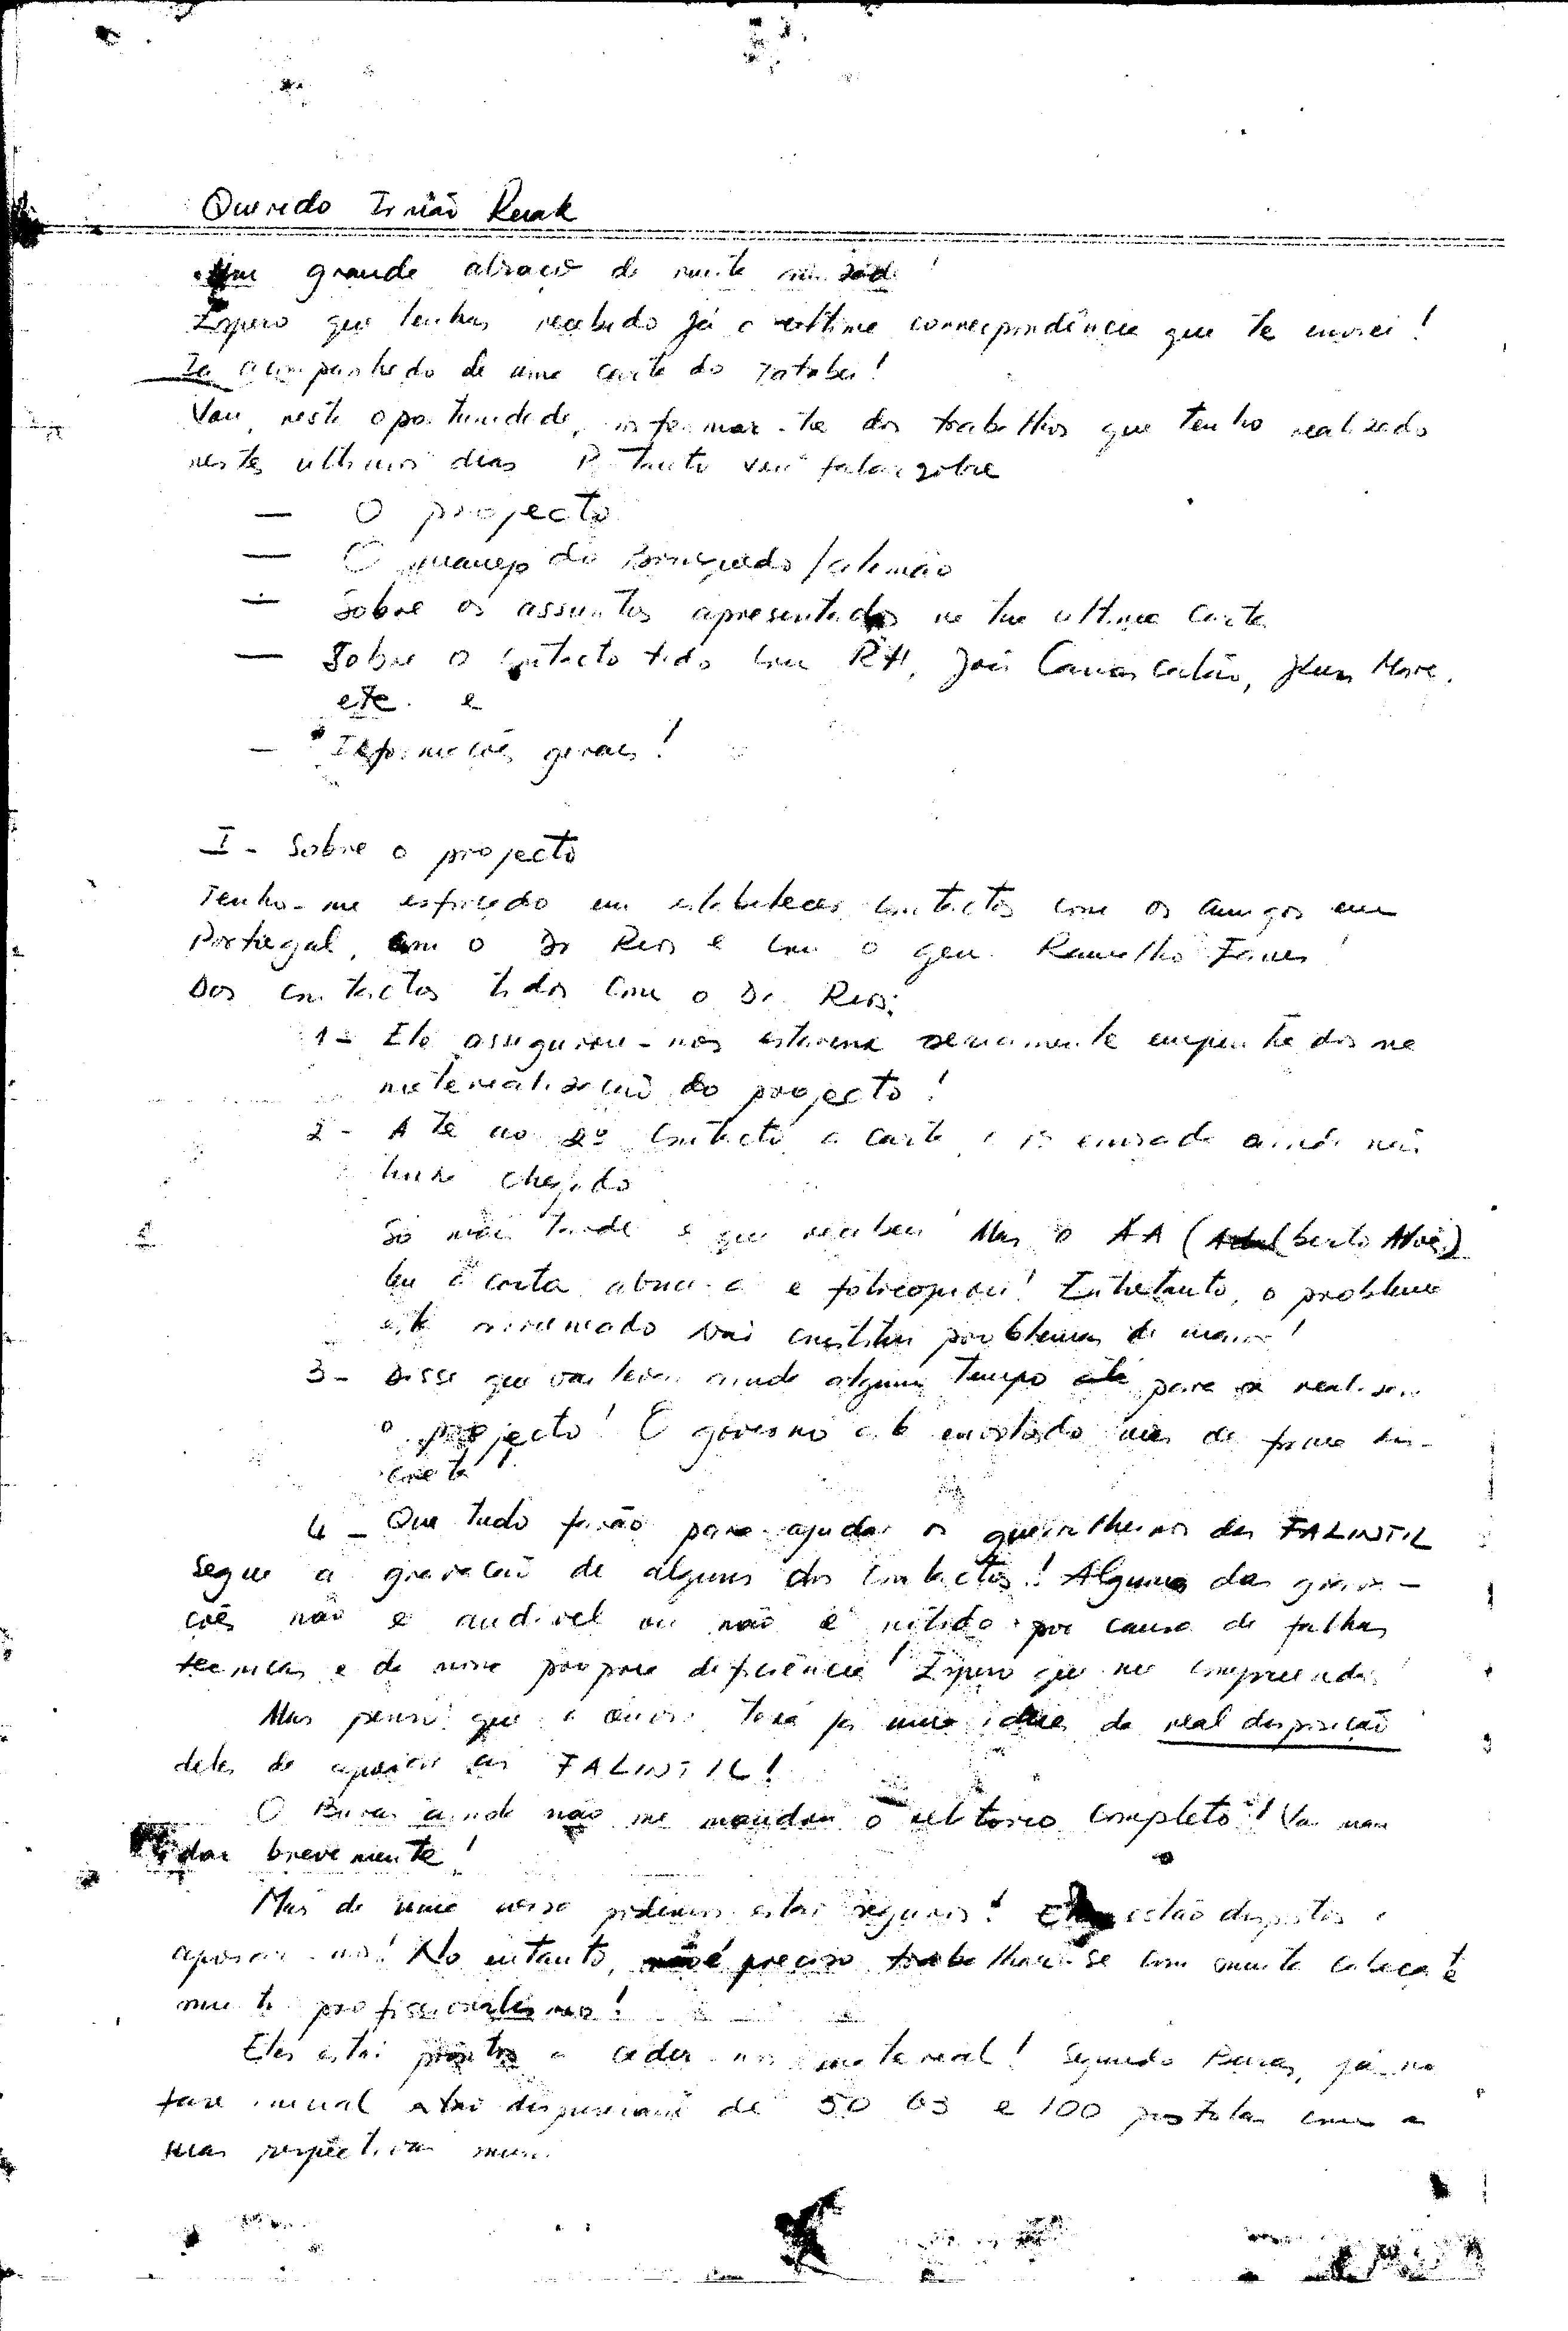 Querido Irmão Ruak
Um grande abraço de muita
Espero que tenhas recebido já a última correspondência que te enviei!
Ia acompanhado de uma carta do
Vou, nesta oportunidade, informar-te dos trabalhos que tenho realizado
nestes últimos dias Portanto vou falar sobre
— O projecto
— O do /alemão
— Sobre os assuntos apresentados na tua última carta
— Sobre o contacto tido com RH, João Carrascalão,
etc. e
— Informações gerais!
I - Sobre o projecto
Tenho-me esforçado em estabelecer contactos com os amigos em
Portugal, com o Dr Reis e com o gen. Ramalho Eanes!
Dos contactos tidos com o Dr. Reis:
1 - Ele assegurou-nos estarem seriamente empenhados na
materialização do projecto!
2 - Até ao 2º contacto a carta enviada ainda não
tinha chegado
Só mais tarde é que recebeu! Mas o AA (Adalberto Alves)
leu a carta, abriu-a e fotocopiou! Entretanto, o problema
está não constitui problemas de maior!
3 - Disse que vai levar ainda algum tempo até para se realizar
o projecto! O governo está envolvido mas de forma dis-
creta!
4 - Que tudo farão para ajudar os guerrilheiros das FALINTIL
Segue a gravação de alguns dos contactos! Algumas das grava-
ções não é audível ou não é nítida por causa de falhas
técnicas e da minha própria deficiência! Espero que me compreendas!
Mas penso que a ouvir terá já uma ideia da real disposição
deles de apoiar as FALINTIL!
O ainda não me mandou o relatório completo! Vai man
dar brevemente!
Mas de uma coisa podemos estar seguros! Eles estão dispostos a
apoiar-nos! No entanto, é preciso trabalhar-se com muita cabeça e
muito profissionalismo!
Eles estão prontos a ceder-nos material! Segundo já na
fase inicial disposição de 50 G3 e 100 pistolas com as
suas respectivas